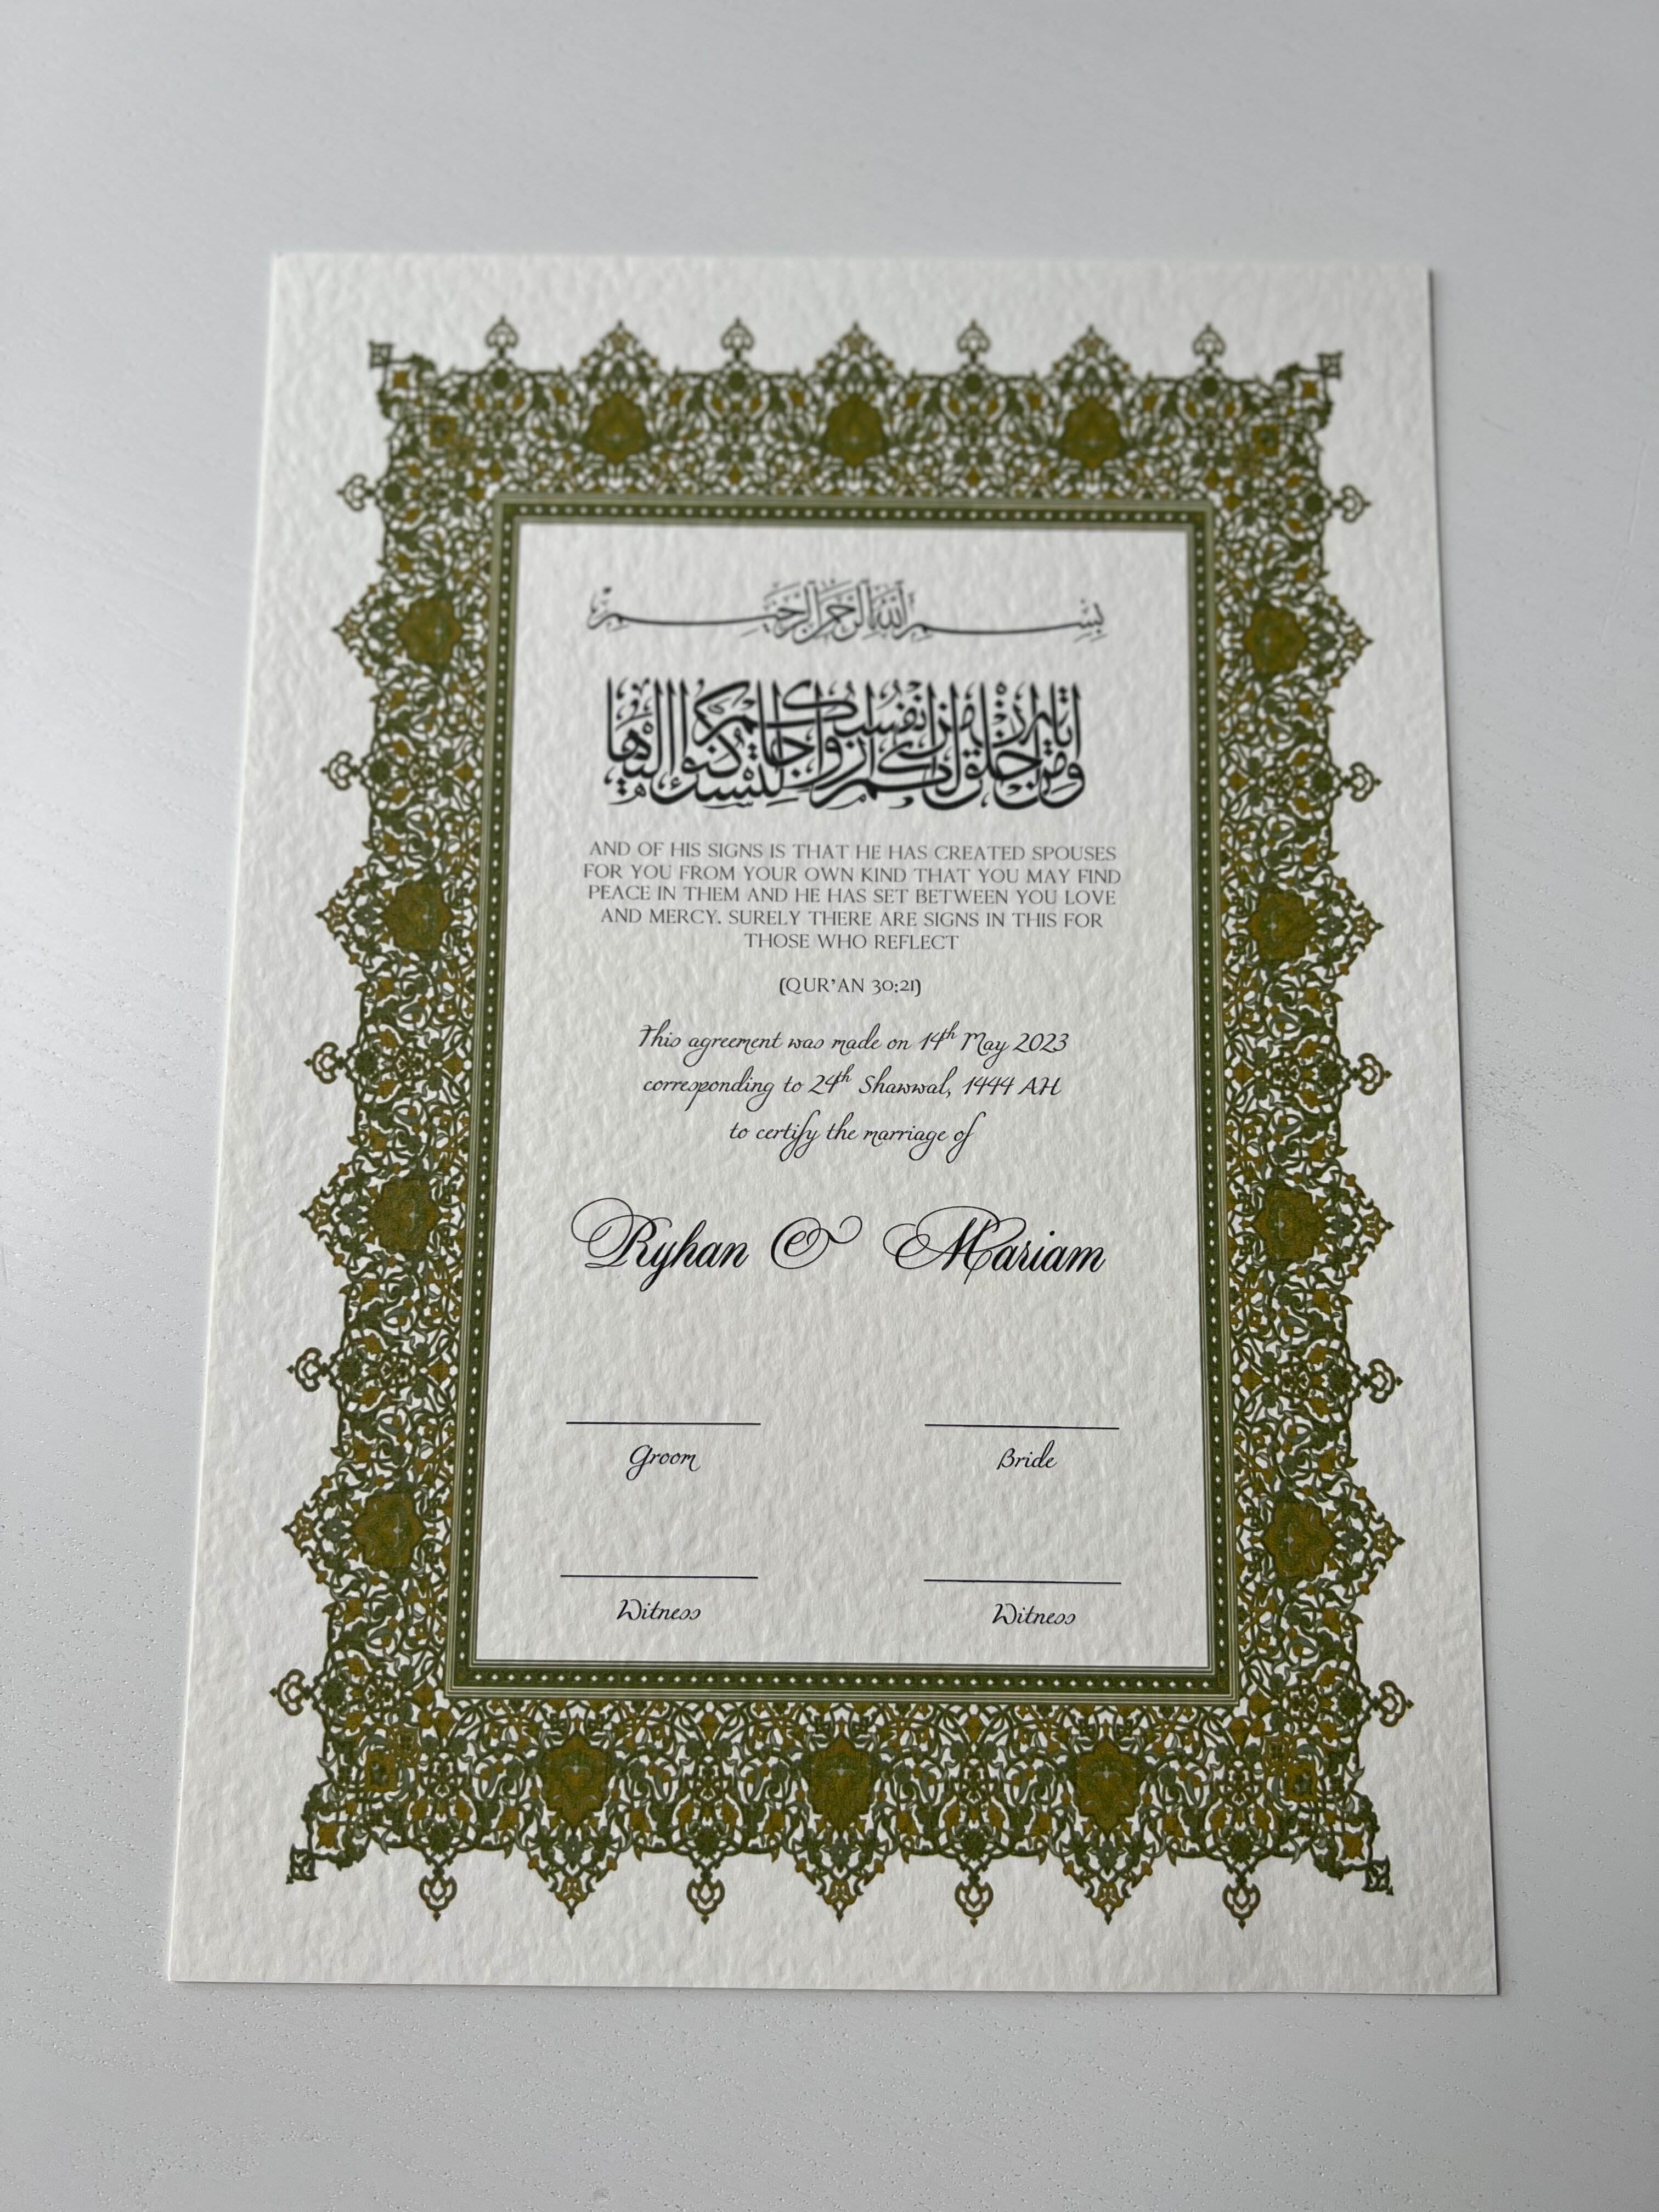 بِسْمِ اللَّهِ الرَّحْمَٰنِ الرَّحِيمِ
وَمِنْ آيَاتِهِ أَنْ خَلَقَ لَكُمْ مِنْ أَنْفُسِكُمْ أَزْوَاجًا لِتَسْكُنُوا إِلَيْهَا
AND OF HIS SIGNS IS THAT HE HAS CREATED SPOUSES
FOR YOU FROM YOUR OWN KIND THAT YOU MAY FIND
PEACE IN THEM AND HE HAS SET BETWEEN YOU LOVE
AND MERCY. SURELY THERE ARE SIGNS IN THIS FOR
THOSE WHO REFLECT
(QUR'AN 30:21)
This agreement was made on 14th May 2023
corresponding to 24th Shawwal, 1444 AH
to certify the marriage of
Ryhan & Mariam
Groom Bride
Witness Witness